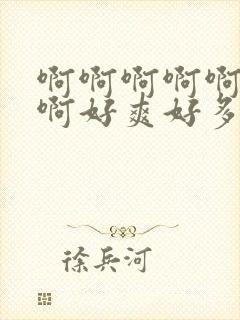 啊啊啊啊啊
啊好爽好多
徐兵河